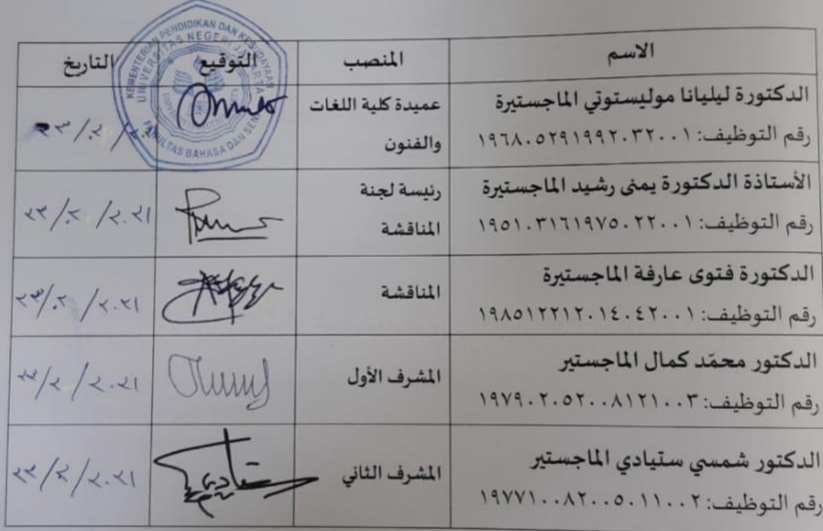 الاسم
المنصب
التوقيع
التاريخ
الدكتورة ليليانا موليستوتي الماجستيرة
رقم التوظيف: ١٩٦٨٠٥٢٩١٩٩٢٠٣٢٠٠١
عميدة كلية اللغات
والفنون
KEMENTERIAN PENDIDIKAN DAN KEBUDAYAAN
UNIVERSITAS NEGERI JAKARTA
FAKULTAS BAHASA DAN SENI
الأستاذة الدكتورة يمنى رشيد الماجستيرة
رقم التوظيف: ١٩٥١٠٣١٦١٩٧٥٠٢٢٠٠١
رئيسة لجنة
المناقشة
الدكتورة فتوى عارفة الماجستيرة
رقم التوظيف: ١٩٨٥١٢٢١٢٠١٤٠٤٢٠٠١
المناقشة
الدكتور محمّد كمال الماجستير
رقم التوظيف: ١٩٧٩٠٢٠٥٢٠٠٨١٢١٠٠٣
المشرف الأول
الدكتور شمسي ستيادي الماجستير
رقم التوظيف: ١٩٧٧١٠٠٨٢٠٠٥٠١١٠٠٢
المشرف الثاني